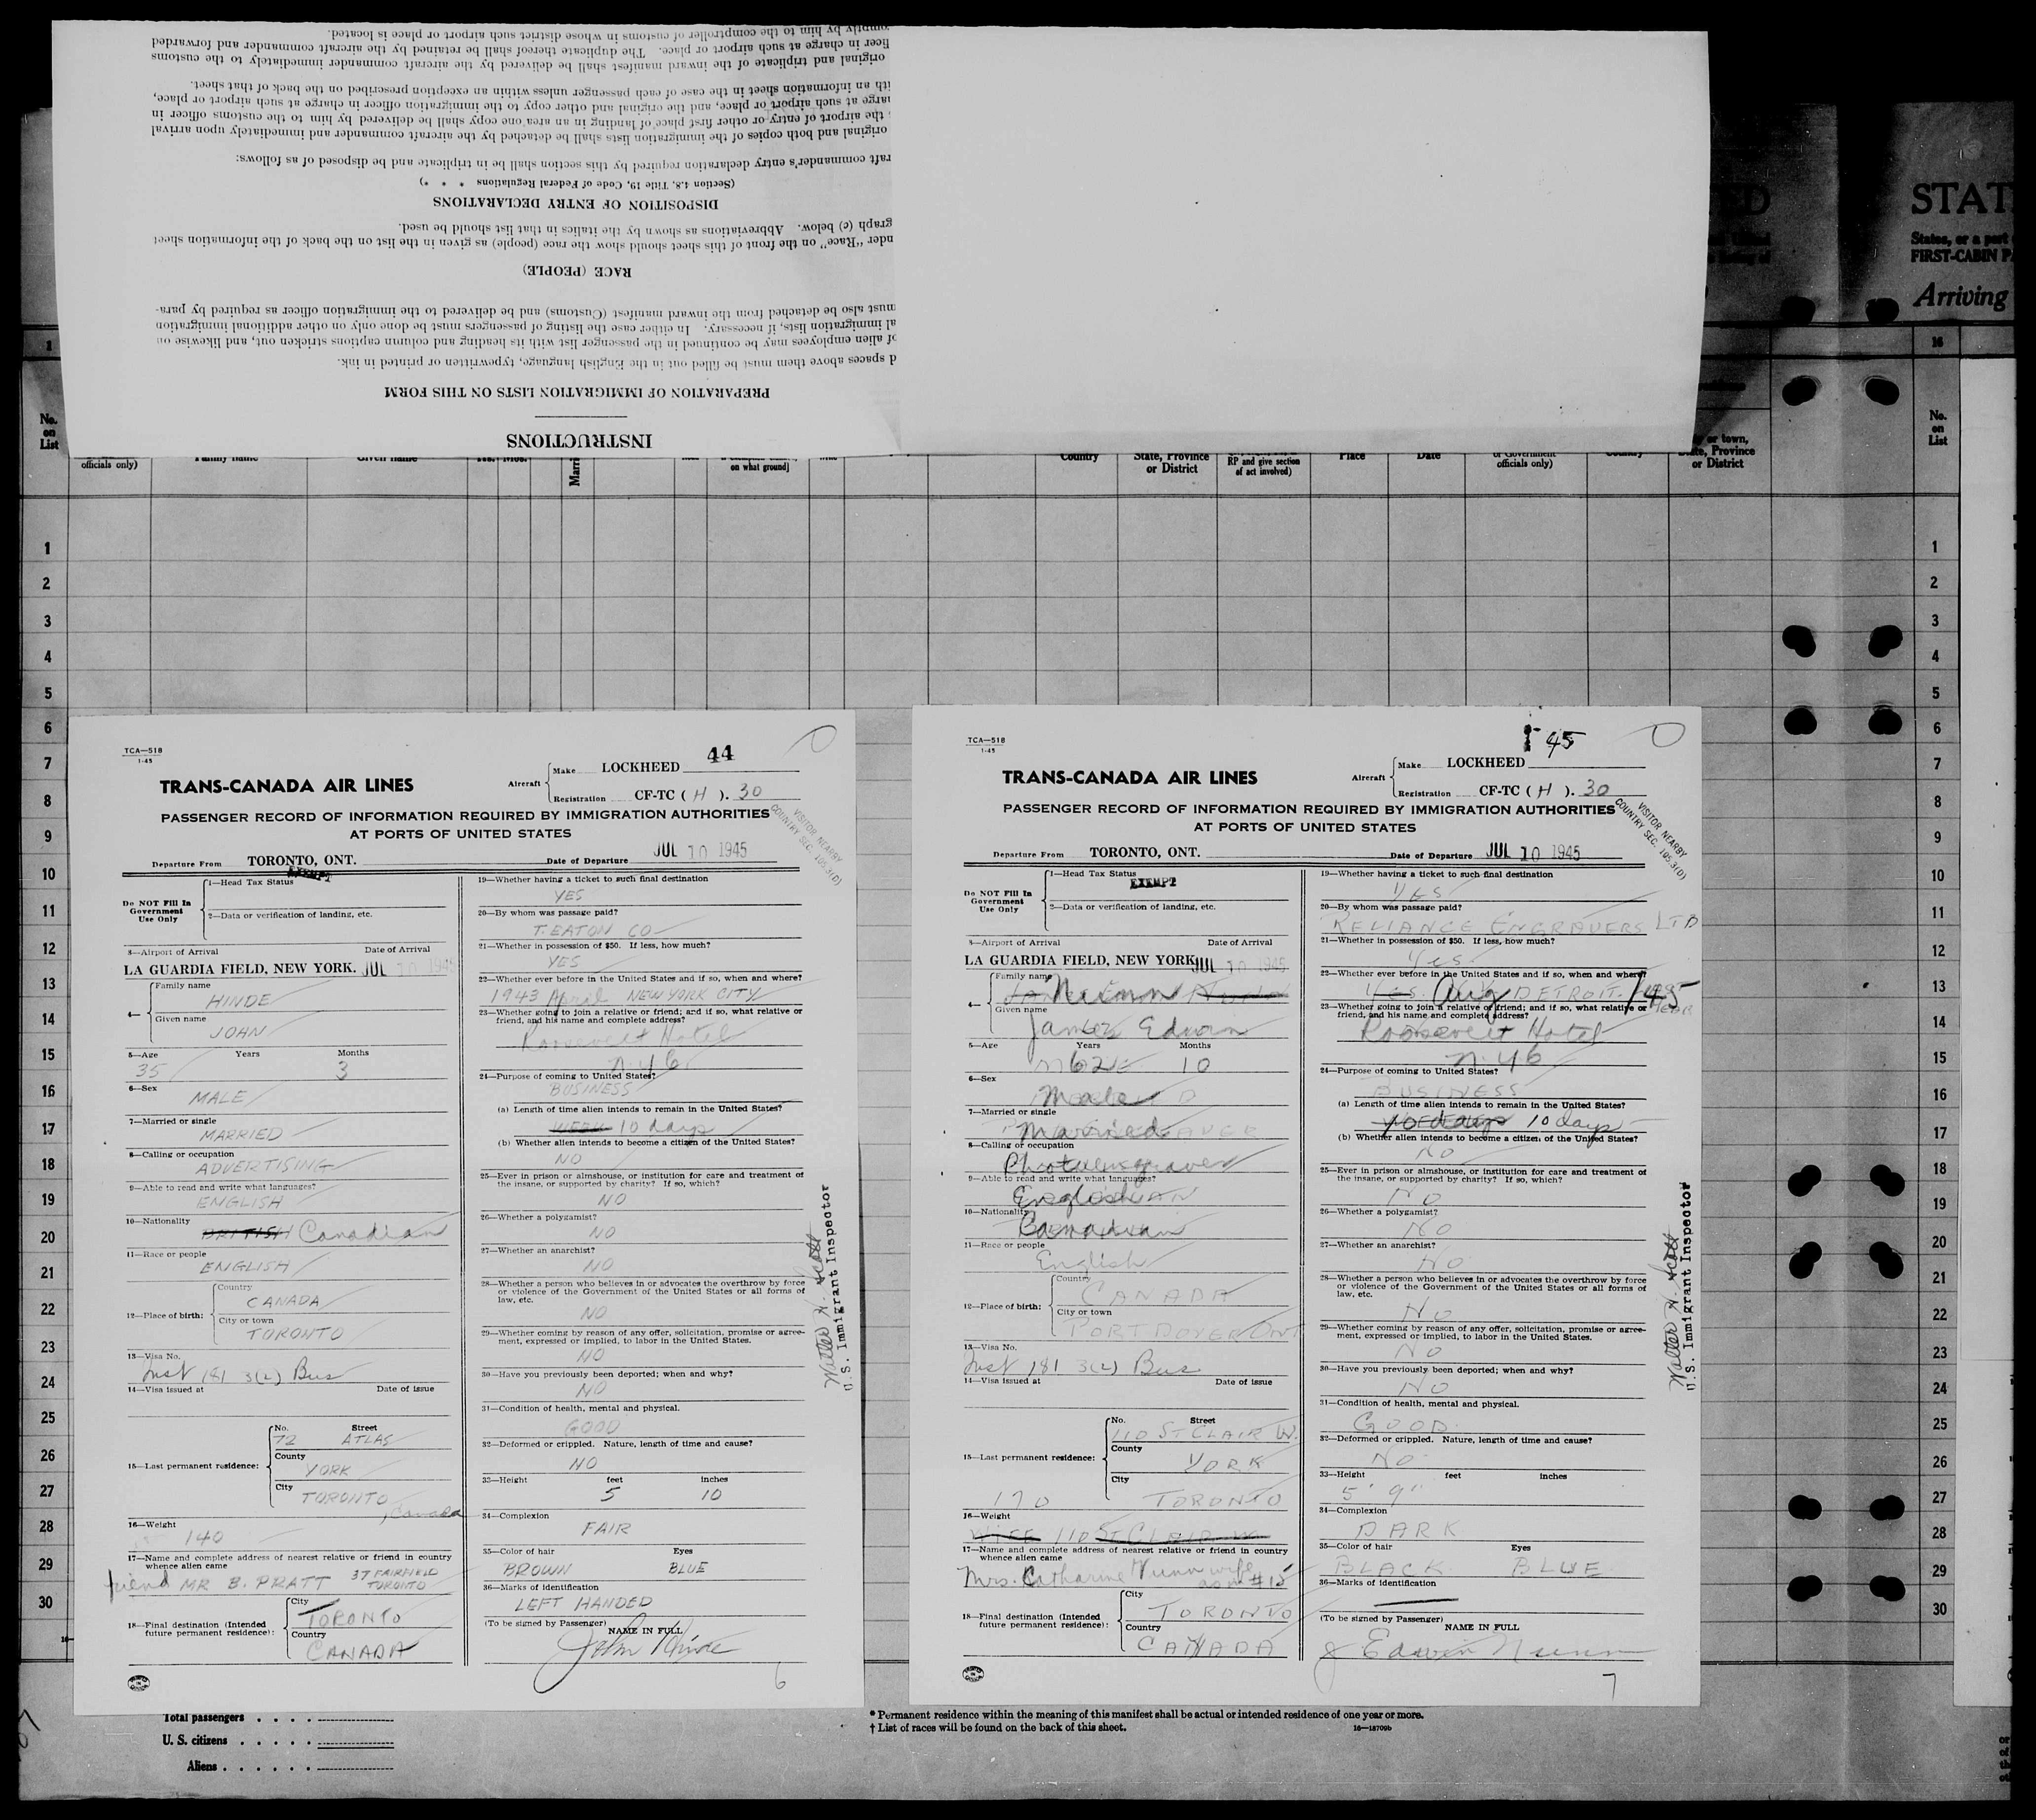 INSTRUCTIONS
PREPARATION OF IMMIGRATION LISTS ON THIS FORM
d spaces above them must be filled out in the English language, typewritten or printed in ink.
of alien employees may be continued in the passenger list with its heading and column captions stricken out, and likewise on
al immigration lists, if necessary. In either case the listing of passengers must be done only on other additional immigration
must also be detached from the inward manifest (Customs) and be delivered to the immigration officer as required by para-
RACE (PEOPLE)
nder "Race" on the front of this sheet should show the race (people) as given in the list on the back of the information sheet
graph (c) below. Abbreviations as shown by the italics in that list should be used.
DISPOSITION OF ENTRY DECLARATIONS
(Section 4.8, Title 19, Code of Federal Regulations * * *)
raft commander's entry declaration required by this section shall be in triplicate and be disposed of as follows:
original and both copies of the immigration lists shall be detached by the aircraft commander and immediately upon arrival
the airport of entry or other first place of landing in an area one copy shall be delivered by him to the customs officer in
arge at such airport or place, and the original and other copy to the immigration officer in charge at such airport or place,
ith an information sheet in the case of each passenger unless within an exception prescribed on the back of that sheet.
original and triplicate of the inward manifest shall be delivered by the aircraft commander immediately to the customs
ficer in charge at such airport or place. The duplicate thereof shall be retained by the aircraft commander and forwarded
omptly by him to the comptroller of customs in whose district such airport or place is located.
ED
STAT
States, or a part
FIRST-CABIN P
Arriving
1
16
No.
on
List
officials only)
Family name
Given name
Yrs. Mos.
on what ground]
Country
State, Province
or District
RP and give section
of act involved)
Place
Date
or Government
officials only)
Country
or town,
State, Province
or District
No.
on
List
1
2
3
4
5
6
7
8
9
10
11
12
13
14
15
16
17
18
19
20
21
22
23
24
25
26
27
28
29
30
TCA—518
1-45
44
TRANS-CANADA AIR LINES
Aircraft
Make LOCKHEED
Registration CF-TC ( H ). 30
PASSENGER RECORD OF INFORMATION REQUIRED BY IMMIGRATION AUTHORITIES
AT PORTS OF UNITED STATES
VISITOR NEARBY
COUNTRY SEC. 105.3(D)
Departure From TORONTO, ONT. Date of Departure JUL 10 1945
Do NOT Fill In
Government
Use Only
1—Head Tax Status EXEMPT
2—Data or verification of landing, etc.
3—Airport of Arrival Date of Arrival
LA GUARDIA FIELD, NEW YORK. JUL 10 1945
4— Family name
HINDE
Given name
JOHN
5—Age Years Months
35 3
6—Sex
MALE
7—Married or single
MARRIED
8—Calling or occupation
ADVERTISING
9—Able to read and write what languages?
ENGLISH
10—Nationality
BRITISH Canadian
11—Race or people
ENGLISH
12—Place of birth:
Country
CANADA
City or town
TORONTO
13—Visa No.
Inst 181 3(2) Bus
14—Visa issued at Date of issue
15—Last permanent residence:
No. Street
72 ATLAS
County
YORK
City
TORONTO, Canada
16—Weight
140
17—Name and complete address of nearest relative or friend in country
whence alien came
friend MR B. PRATT 37 FAIRFIELD
TORONTO
18—Final destination (Intended
future permanent residence):
City
TORONTO
Country
CANADA
19—Whether having a ticket to such final destination
YES
20—By whom was passage paid?
T. EATON CO
21—Whether in possession of $50. If less, how much?
YES
22—Whether ever before in the United States and if so, when and where?
1943 April NEW YORK CITY
23—Whether going to join a relative or friend; and if so, what relative or
friend, and his name and complete address?
Roosevelt Hotel
N.Y.C.
24—Purpose of coming to United States?
BUSINESS
(a) Length of time alien intends to remain in the United States?
WEEK 10 days
(b) Whether alien intends to become a citizen of the United States?
NO
25—Ever in prison or almshouse, or institution for care and treatment of
the insane, or supported by charity? If so, which?
NO
26—Whether a polygamist?
NO
27—Whether an anarchist?
NO
28—Whether a person who believes in or advocates the overthrow by force
or violence of the Government of the United States or all forms of
law, etc.
NO
29—Whether coming by reason of any offer, solicitation, promise or agree-
ment, expressed or implied, to labor in the United States.
NO
30—Have you previously been deported; when and why?
NO
31—Condition of health, mental and physical.
GOOD
32—Deformed or crippled. Nature, length of time and cause?
NO
33—Height feet inches
5 10
34—Complexion
FAIR
35—Color of hair Eyes
BROWN BLUE
36—Marks of identification
LEFT HANDED
(To be signed by Passenger) NAME IN FULL
John Hinde
6
Walter H. Scott
U. S. Immigrant Inspector
TCA—518
1-45
45
TRANS-CANADA AIR LINES
Aircraft
Make LOCKHEED
Registration CF-TC ( H ). 30
PASSENGER RECORD OF INFORMATION REQUIRED BY IMMIGRATION AUTHORITIES
AT PORTS OF UNITED STATES
VISITOR NEARBY
COUNTRY SEC. 105.3(D)
Departure From TORONTO, ONT. Date of Departure JUL 10 1945
Do NOT Fill In
Government
Use Only
1—Head Tax Status EXEMPT
2—Data or verification of landing, etc.
3—Airport of Arrival Date of Arrival
LA GUARDIA FIELD, NEW YORK JUL 10 1945
4— Family name
Nunn
Given name
James Edwin
5—Age Years Months
62 10
6—Sex
Male
7—Married or single
Married
8—Calling or occupation
Photoengraver
9—Able to read and write what languages?
English
10—Nationality
Canadian
11—Race or people
English
12—Place of birth:
Country
CANADA
City or town
PORT DOVER ONT
13—Visa No.
Inst 181 3(2) Bus
14—Visa issued at Date of issue
15—Last permanent residence:
No. Street
110 ST CLAIR W.
County
YORK
City
170 TORONTO
16—Weight
WIFE 110 ST CLAIR W
17—Name and complete address of nearest relative or friend in country
whence alien came
Mrs. Catharine Nunn wife
as in #15
18—Final destination (Intended
future permanent residence):
City
TORONTO
Country
CANADA
19—Whether having a ticket to such final destination
YES
20—By whom was passage paid?
RELIANCE ENGRAVERS LTD
21—Whether in possession of $50. If less, how much?
Yes
22—Whether ever before in the United States and if so, when and where?
Yes. Aug DETROIT.
23—Whether going to join a relative or friend; and if so, what relative or
friend, and his name and complete address?
Roosevelt Hotel
N.Y.C
24—Purpose of coming to United States?
BUSINESS
(a) Length of time alien intends to remain in the United States?
10 days
(b) Whether alien intends to become a citizen of the United States?
NO
25—Ever in prison or almshouse, or institution for care and treatment of
the insane, or supported by charity? If so, which?
NO
26—Whether a polygamist?
NO
27—Whether an anarchist?
NO
28—Whether a person who believes in or advocates the overthrow by force
or violence of the Government of the United States or all forms of
law, etc.
NO
29—Whether coming by reason of any offer, solicitation, promise or agree-
ment, expressed or implied, to labor in the United States.
NO
30—Have you previously been deported; when and why?
NO
31—Condition of health, mental and physical.
GOOD.
32—Deformed or crippled. Nature, length of time and cause?
NO
33—Height feet inches
5' 9"
34—Complexion
DARK
35—Color of hair Eyes
BLACK BLUE
36—Marks of identification
(To be signed by Passenger) NAME IN FULL
J Edwin Nunn
7
Walter H. Scott
U. S. Immigrant Inspector
1
2
3
4
5
6
7
8
9
10
11
12
13
14
15
16
17
18
19
20
21
22
23
24
25
26
27
28
29
30
Total passengers
U. S. citizens
Aliens
* Permanent residence within the meaning of this manifest shall be actual or intended residence of one year or more.
† List of races will be found on the back of this sheet.
16—18709b